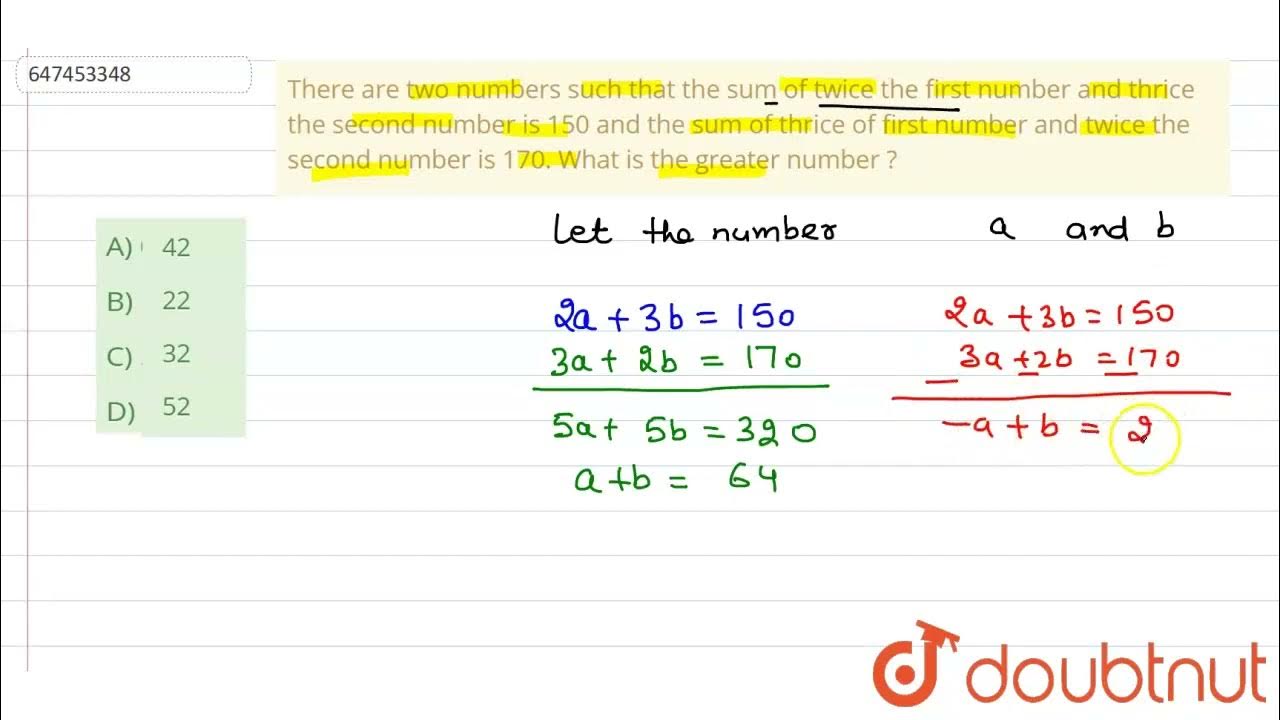 647453348
There are two numbers such that the sum of twice the first number and thrice
the second number is 150 and the sum of thrice of first number and twice the
second number is 170. What is the greater number ?
A) 42
B) 22
C) 32
D) 52
let the number a and b
2a + 3b = 150
3a + 2b = 170
5a + 5b = 320
a + b = 64
2a + 3b = 150
3a + 2b = 170
- a + b = 2
doubtnut